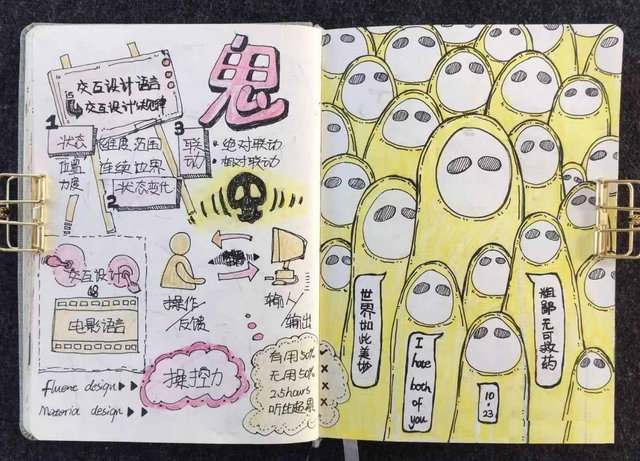 交互设计语言
is
交互设计
鬼
1
状态
维度 范围
3
联动
• 绝对联动
• 相对联动
位置
力度
连续 世界
2
状态变化
交互设计
as
电影语言
操作/
反馈
输入/
输出
fluent design ▶▶
Material design ▶▶
操控力
有用50%
无用50%
2.5hours
世界如此美妙
I hate both of you
粗鄙无可救药
10.23